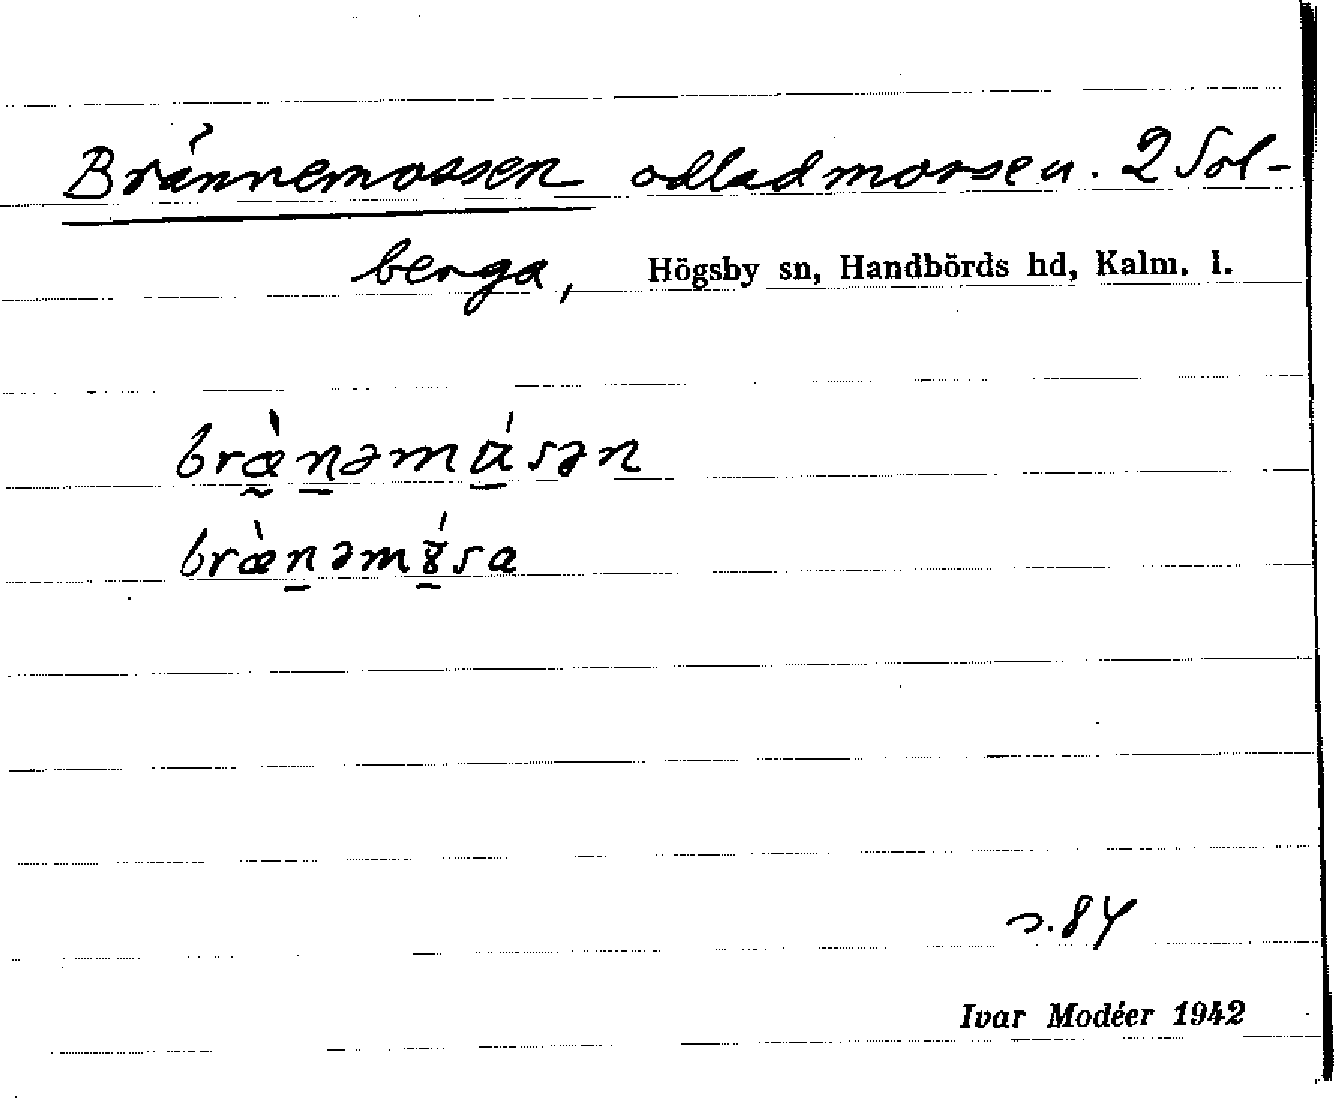 Brännemossen odlad mosse u. 2 Sol-
berga, Högsby sn, Handbörds hd, Kalm. l.
bræ̀nəmɯ́sən
bræ̀nəm󠆀ɣ́sa
s. 84
Ivar Modéer 1942